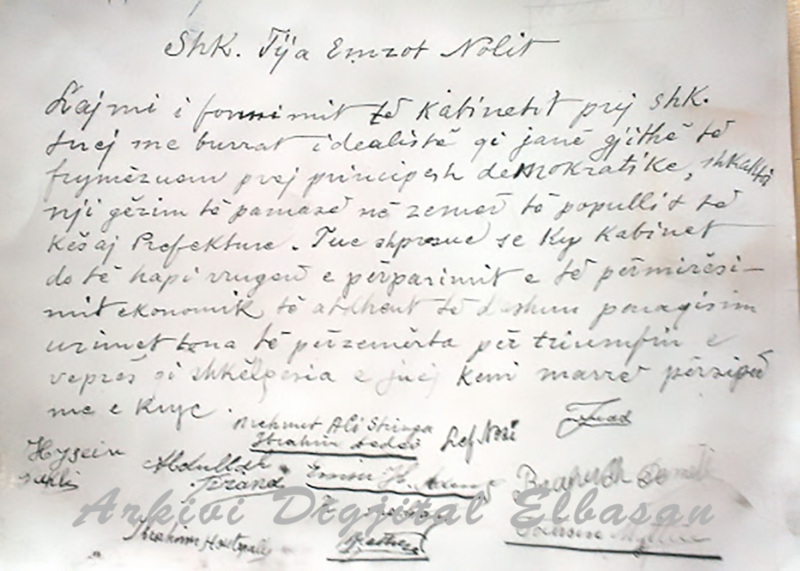 Shk. Tija Emzot Nolit
Lajmi i formimit të Kabinetit prej shk.
tuej me burrat idealistë qi janë gjithë të
frymëzuem prej principesh demokratike, shkaktoi
nji gëzim të pamasë në zemër të popullit të
kësaj Prefekture. Tue shpresue se ky kabinet
do të hapi rrugën e përparimit e të përmirësi-
mit ekonomik të atdheut të dashun paraqisim
urimet tona të përzemërta për triumfin e
veprës qi shkëlqesia e juej keni marrë përsipër
me e krye.
Mehmet Ali Stringa
Ibrahim Dedei
Lef Nosi
Fuad
Hysein
Abdullah
Tirana
Emin H.
Ibrahim
Arkivi Digjital Elbasan